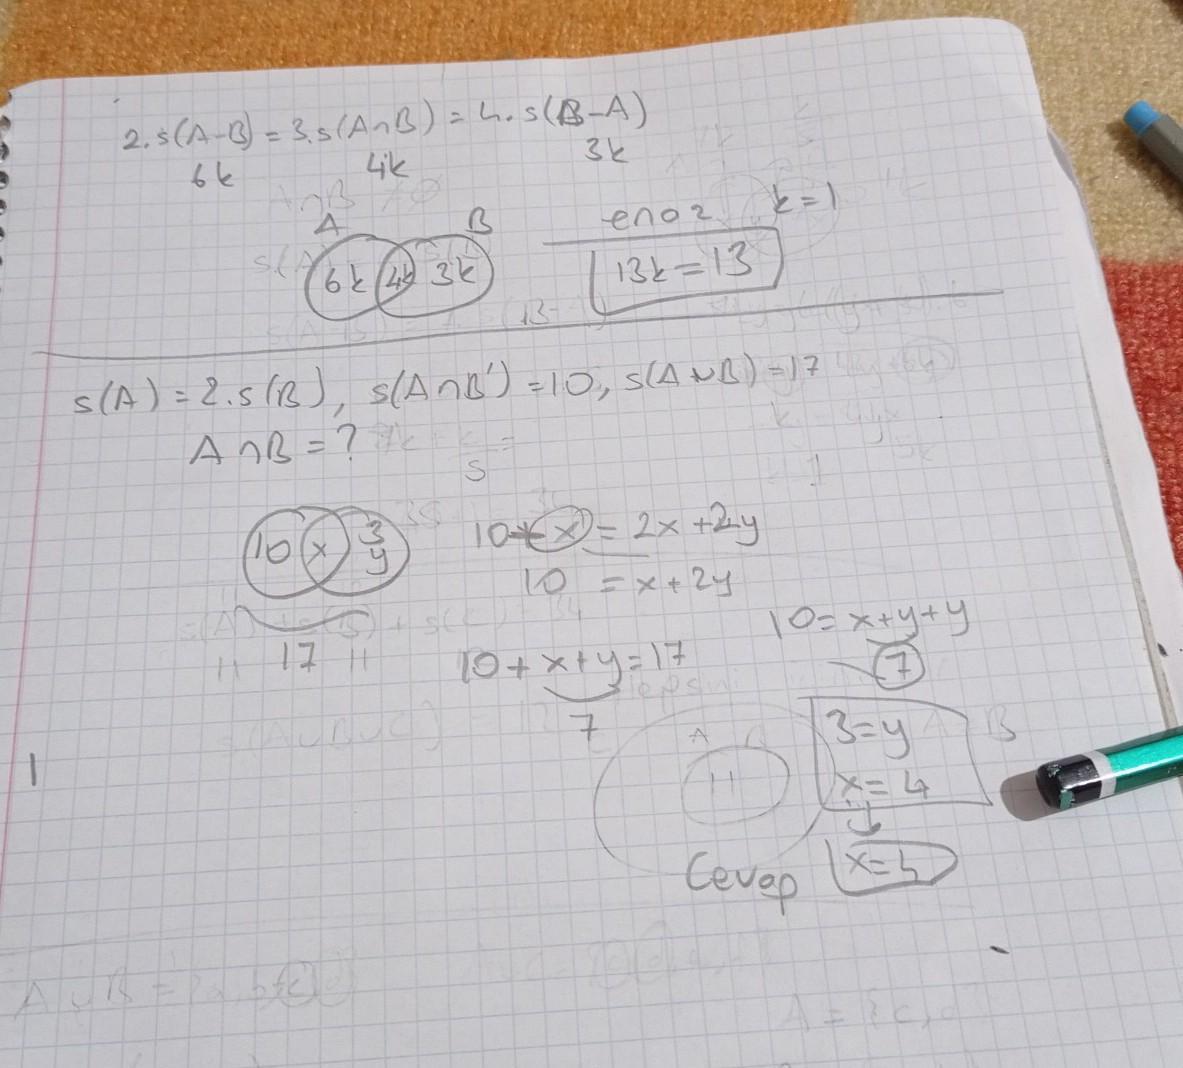 2.s(A-B) = 3.s(A∩B) = 4.s(B-A)
6k 4k 3k
A B enaz k=1
6k 4k 3k 13k=13
s(A) = 2.s(B), s(A∩B') = 10, s(A∪B) = 17
A∩B = ?
10 x 3 y 10+x = 2x+2y
10 = x+2y
10 = x+y+y
17 10+x+y=17 7
7 3=y
x=4
Cevap x=4